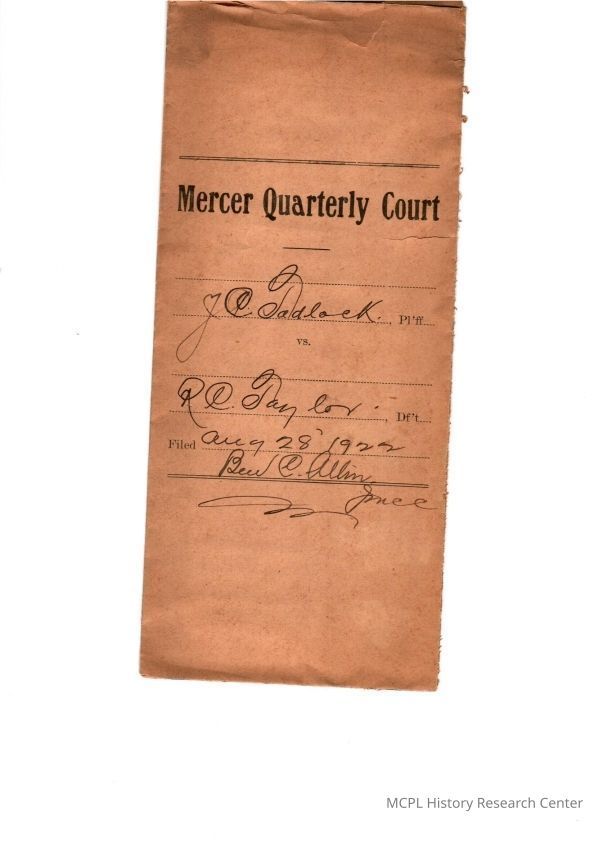 Mercer Quarterly Court
J C. Tadlock., Pl'ff....
vs.
R C. Taylor., Df't....
Filed Aug 28" 1922
Ben C. Allin
MCPL History Research Center